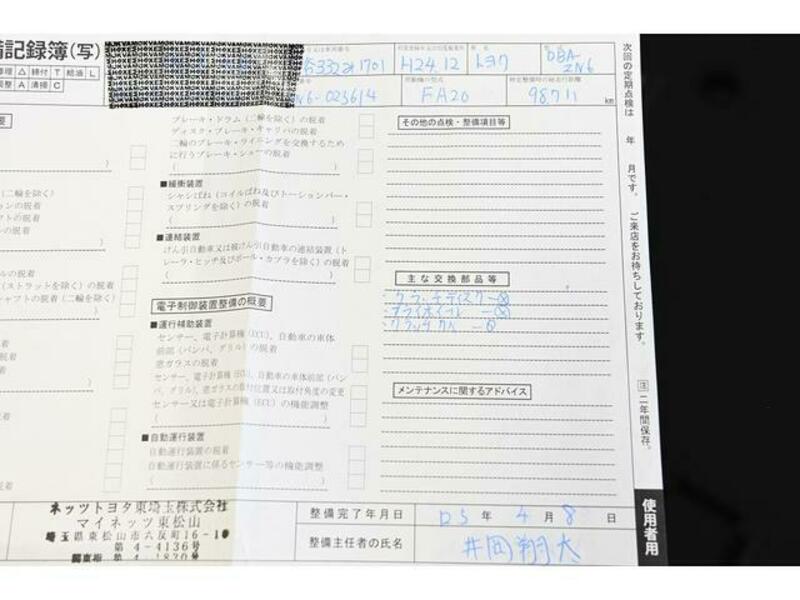 備記録簿(写)
修理 △ 締付 T 給油 L
調整 A 清掃 C
H24.12 トヨタ DBA-ZN6
ZN6-023614 FA20 98711 km
次回の定期点検は 年 月です。ご来店をお待ちしております。
注 二年間保存。
使用者用
ブレーキ・ドラム(二輪を除く)の脱着
ディスク・ブレーキ・キャリパの脱着
二輪のブレーキ・ライニングを交換するため
に行うブレーキ・シューの脱着
■緩衝装置
シャシばね(コイルばね及びトーションバー・
スプリングを除く)の脱着
■連結装置
けん引自動車又は被けん引自動車の連結装置(ト
レーラ・ヒッチ及びボール・カプラを除く)の脱着
電子制御装置整備の概要
■運行補助装置
センサー、電子計算機(ECU)、自動車の車体
前部(バンパ、グリル)の脱着
窓ガラスの脱着
センサー、電子計算機(ECU)、自動車の車体前部(バン
パ、グリル)、窓ガラスの取付位置又は取付角度の変更
センサー又は電子計算機(ECU)の機能調整
■自動運行装置
自動運行装置の脱着
自動運行装置に係るセンサー等の機能調整
(二輪を除く)
ションの脱着
フトの脱着
の脱着
(ストラットを除く)の脱着
シャフトの脱着(二輪を除く)
の脱着
の脱着
の脱着
その他の点検・整備項目等
主な交換部品等
・クラッチディスク-⊗
・フライホイール-⊗
・クラッチカバー-⊗
メンテナンスに関するアドバイス
ネッツトヨタ東埼玉株式会社
マイネッツ東松山
埼玉県東松山市六反町16-10
第4-4136号
整備完了年月日 R5 年 4 月 8 日
整備主任者の氏名 井岡翔太